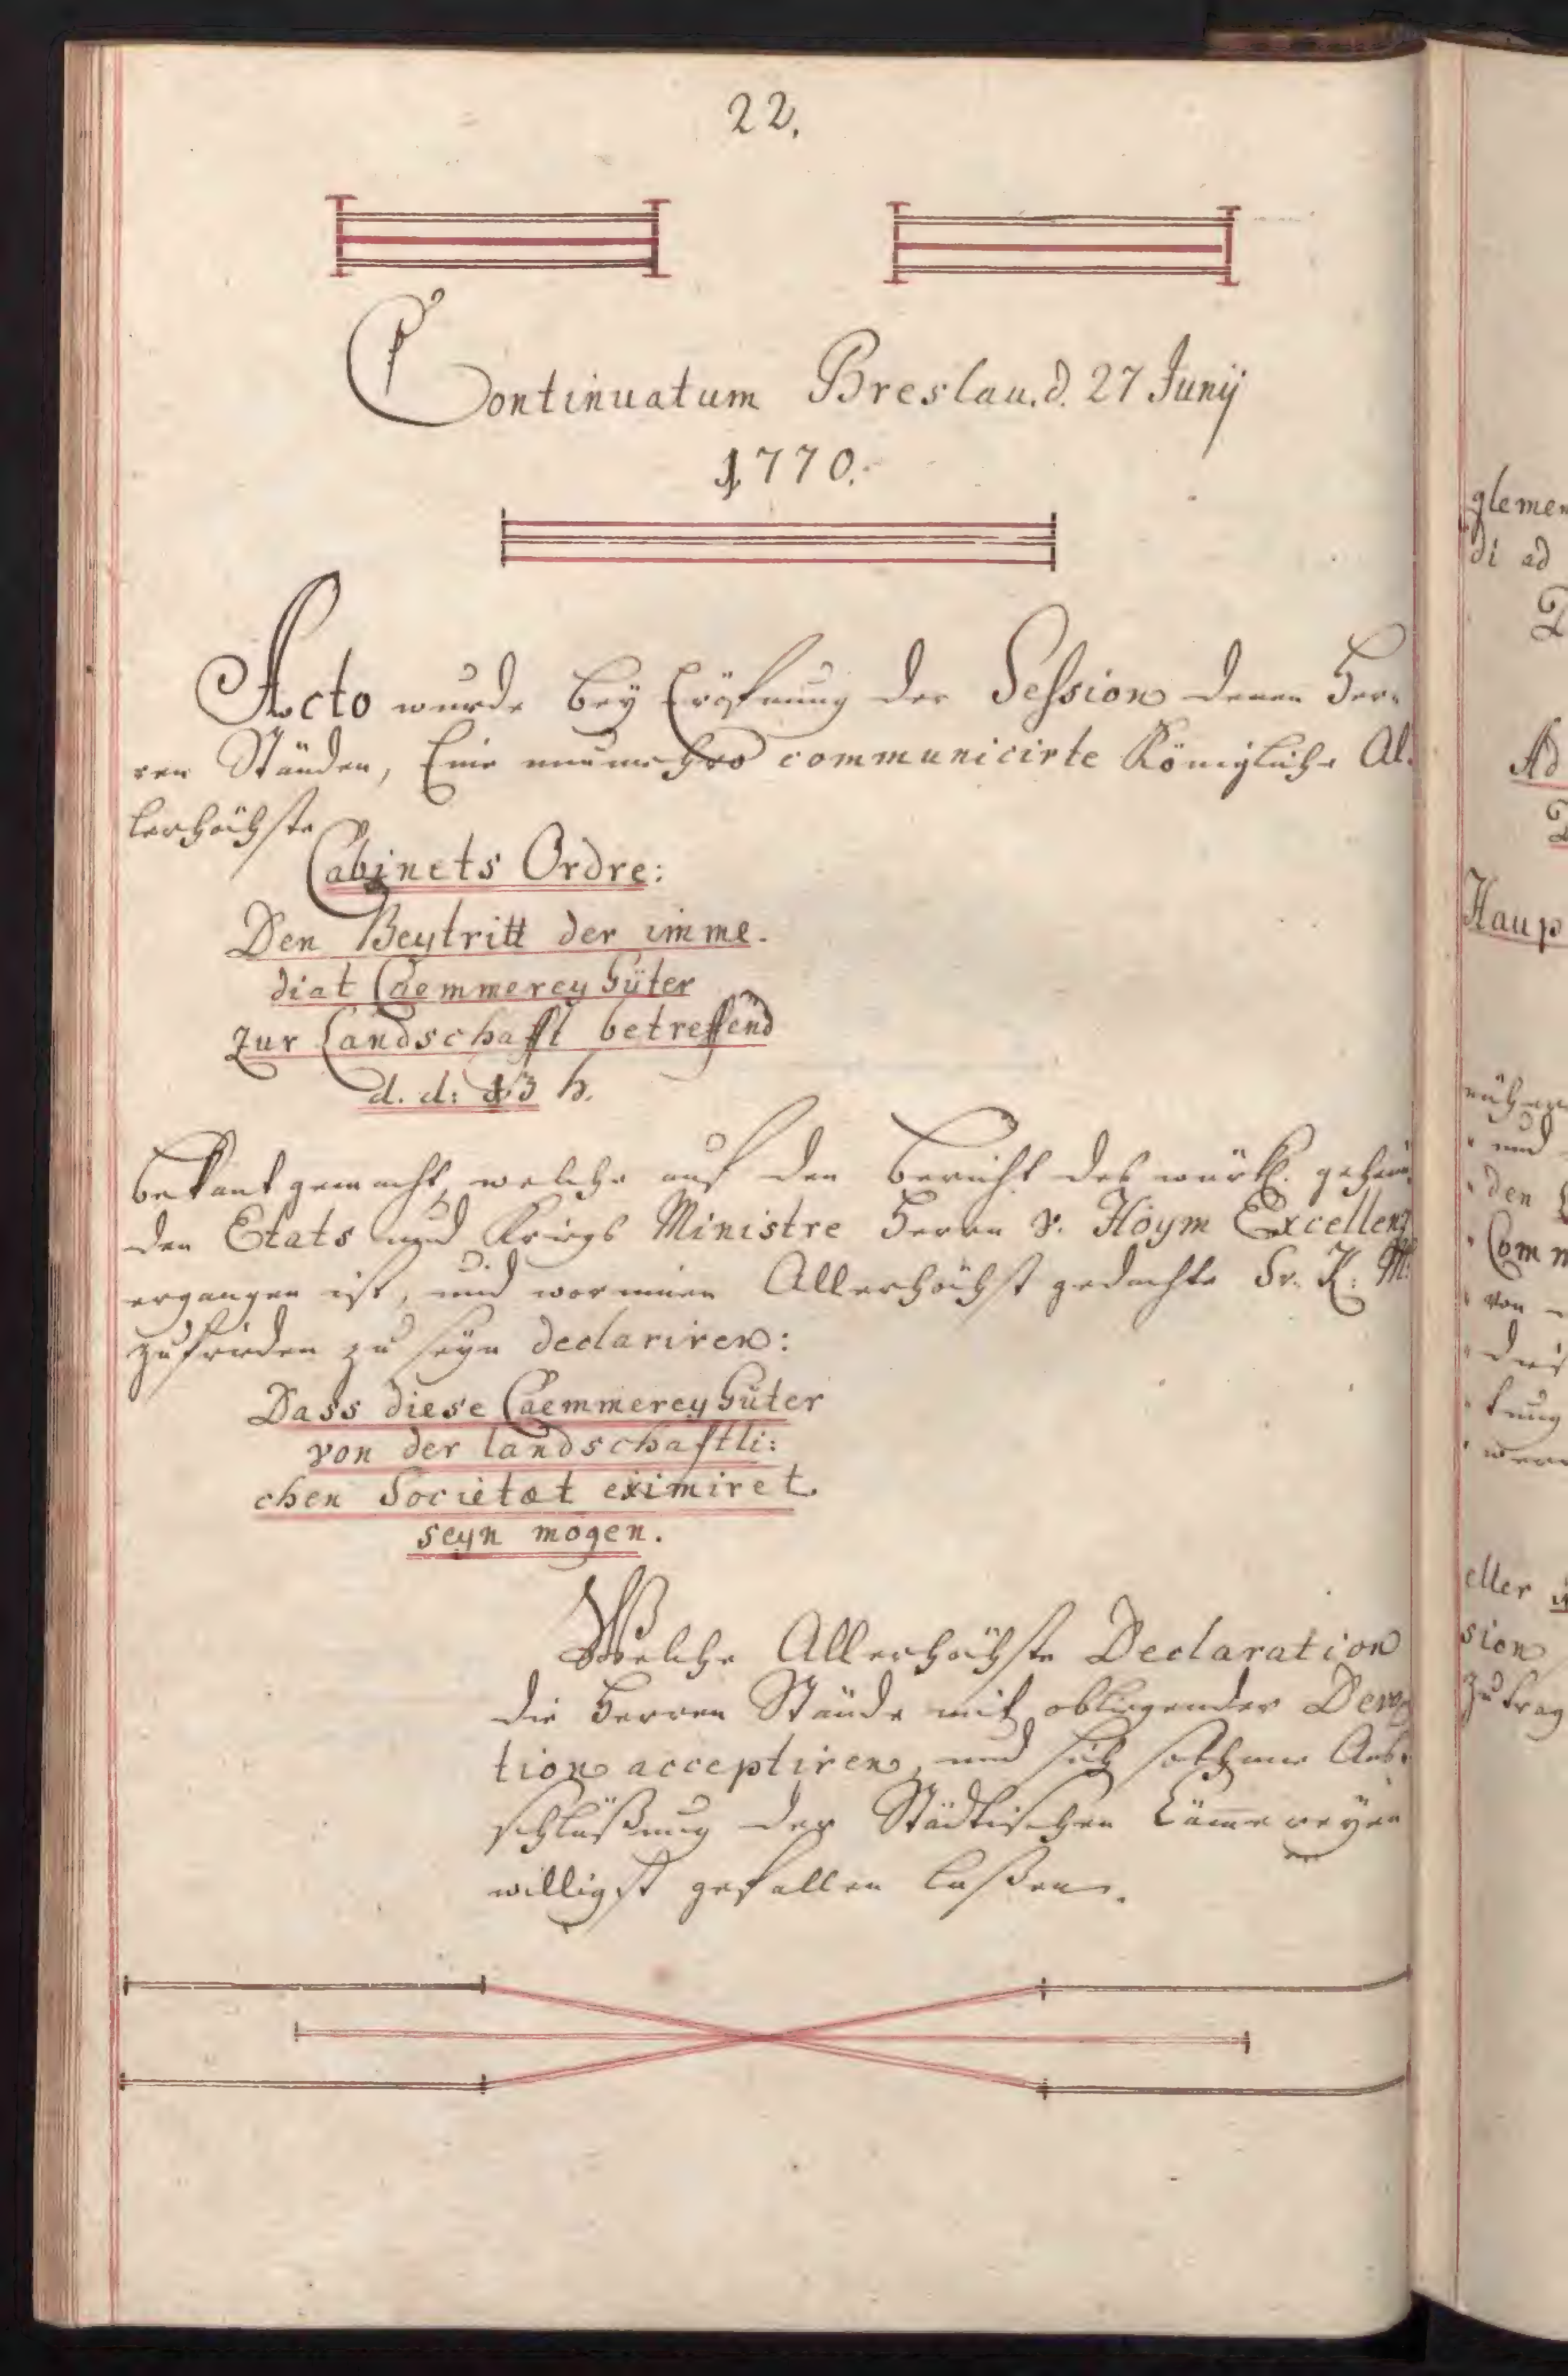 22.
Continuatum Breslau. d. 27 Junij
1770.
Acto wurde bey Eröfnung der Session denen Her-
ren Ständen, Eine nunmehro communicirte Königliche Al-
lerhöchste
Cabinets Ordre:
Den Beytritt der imme-
diat Caemmerey Güter
zur Landschafft betreffend
d. d: 13 h.
bekant gemacht, welche auf den Bericht des würkl. geheim
den Etats und Kriegs Ministre Herrn v. Hoym Excellenz
ergangen ist, und worinnen Allerhöchst gedachte Sr. K: M:
zufrieden zu seyn declariren:
Dass diese Caemmerey Güter
von der landschaftli:
chen Societæt eximiret
seyn mogen.
Welche Allerhöchste Declaration
die Herren Stände mit obliegender Devo
tion acceptiren, und sich solchane Aus-
schlüßung der Städtischen Cämmereyen
willigst gefallen laßen.
glemen
di ad
Ad
Haup
und
den
Comm
von
eller
sion
zutrag